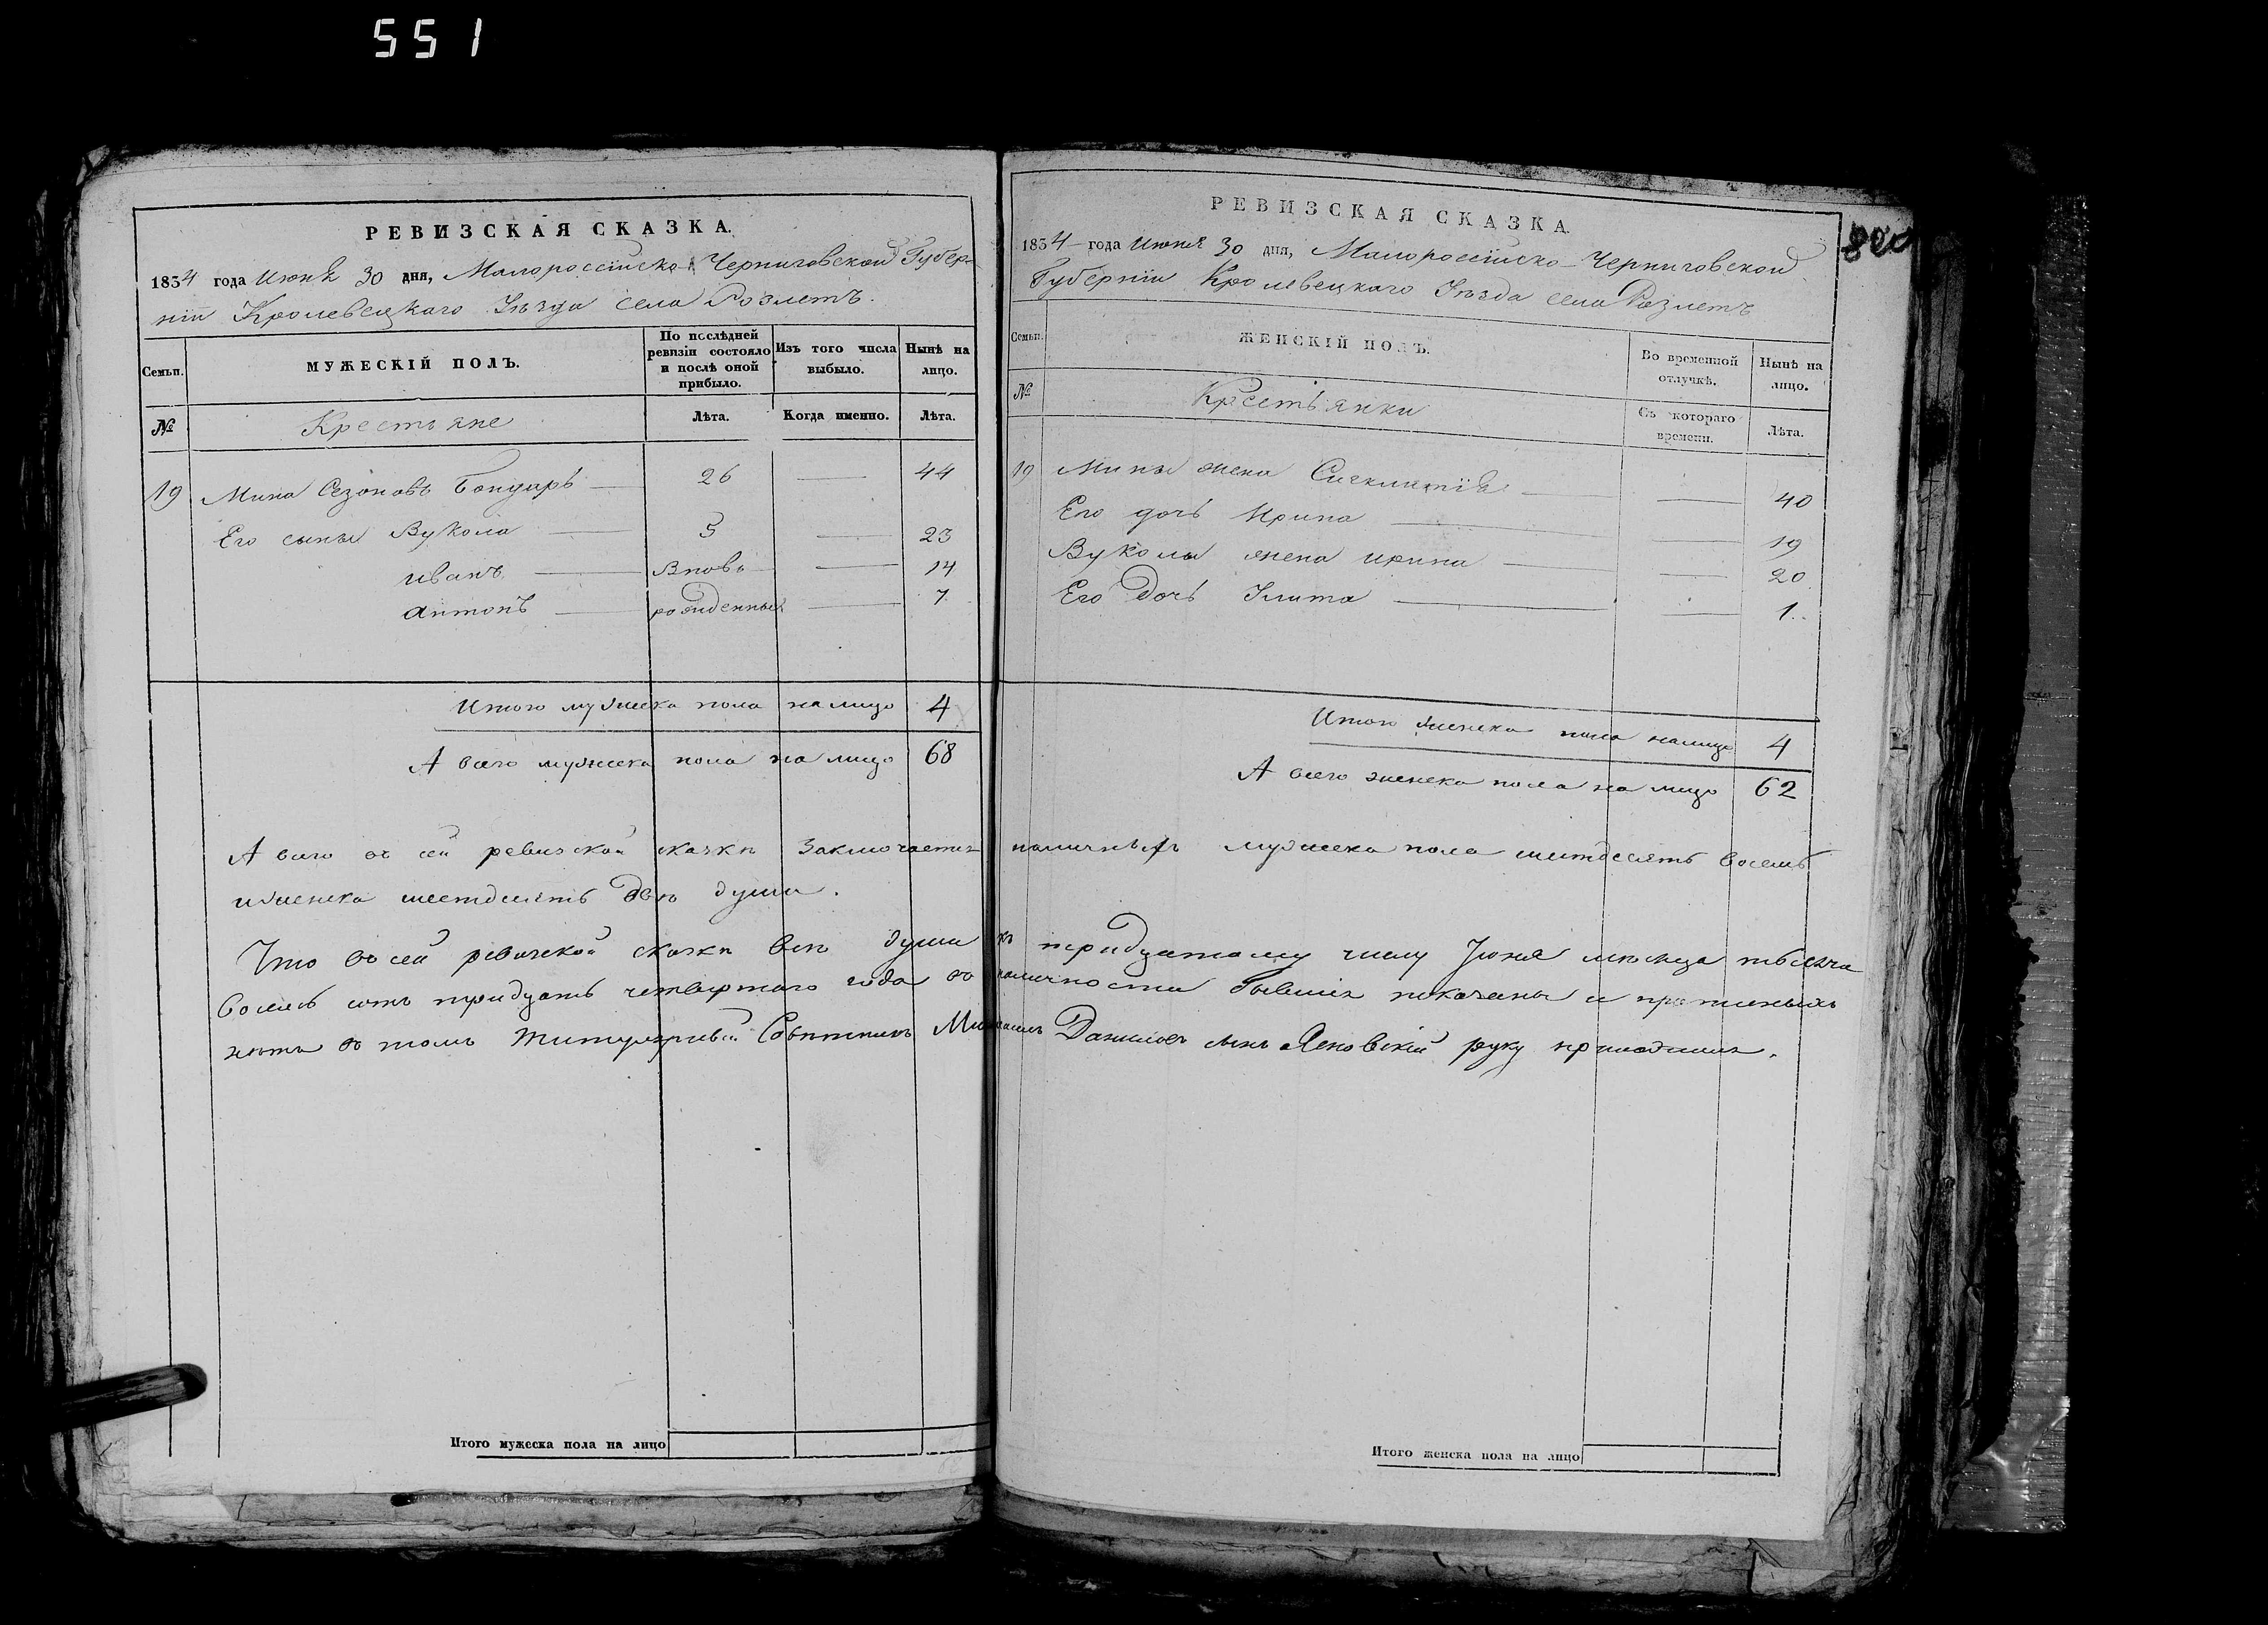 551
РЕВИЗСКАЯ СКАЗКА.
1834 года Июня 30 дня, Малороссійско-Черниговской Губер-
ніи Кролевецкаго Уѣзда села Розлетъ.
Семьи.
МУЖЕСКІЙ ПОЛЪ.
По послѣдней ревизіи состояло и послѣ оной прибыло.
Изъ того числа выбыло.
Нынѣ на лицо.
№
Крестьяне
Лѣта.
Когда именно.
Лѣта.
19 Мина Сезоновъ Бондарь — 26 — 44
Его сыны Вукола — 5 — 23
Иванъ — Вновь — 14
Антонъ — рожденные — 7
Итого мужеска пола на лицо 4
А всего мужеска пола на лицо 68
РЕВИЗСКАЯ СКАЗКА.
1834 года Июня 30 дня, Малороссійско-Черниговской
Губерніи Кролевецкаго Уѣзда села Розлетъ
Семьи.
ЖЕНСКІЙ ПОЛЪ.
Во временной отлучкѣ.
Нынѣ на лицо.
№
Крестьянки
Съ котораго времени.
Лѣта.
19 Мины жена — — 40
Его дочь Ирина — — 19
Вуколы жена Ирина — — 20
Его дочь Улита — — 1.
Итого женска пола налицо 4
А всего женска пола на лицо 62
800
А всего въ сей ревизской сказки заключается наличныхъ мужеска пола шестдесятъ восемь
и женска шестдесятъ двѣ души.
Что въ сей ревизской сказки всѣ души къ тридцатому числу Іюня мѣсяца тысяча
восемь сотъ тридцать четвертаго года въ наличности бывшія показаны и прописныхъ
нетъ въ томъ Титулярный Совѣтникъ Михаилъ Даниловъ сынъ Яновскій руку приложилъ.
Итого мужеска пола на лицо
Итого женска пола на лицо